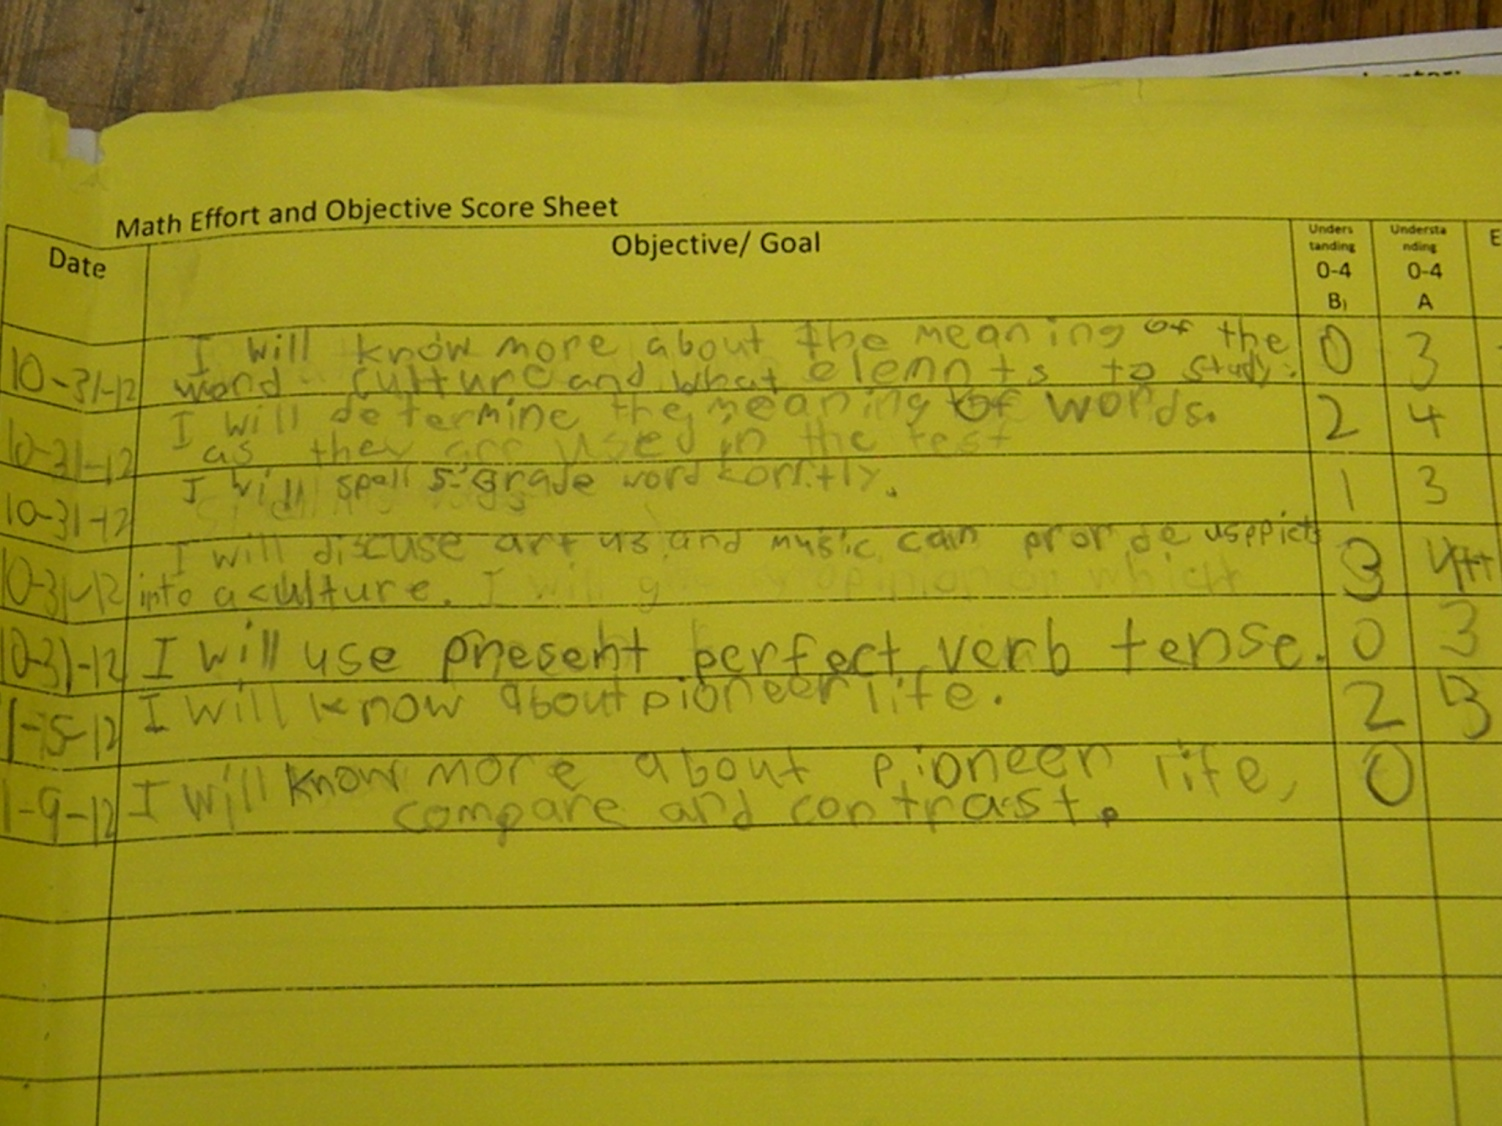 Math Effort and Objective Score Sheet
Date Objective/ Goal Unders Understa E
tanding nding
0-4 0-4
B) A
I will know more about the meaning of the 0 3
10-31-12 word culture and what elemnts to study.
I will determine the meaning of words. 2 4
10-31-12 as they are used in the test
10-31-12 I will spell 5-Grade word korrtly. 1 3
I will discuse art us and music can
10-31-12 into a culture. I will opinion on which 3 4++
10-31-12 I will use present perfect verb tense. 0 3
1-15-12 I will know about pioneer life. 2 3
I will know more about pioneer life, 0
1-9-12 compare and contrast.